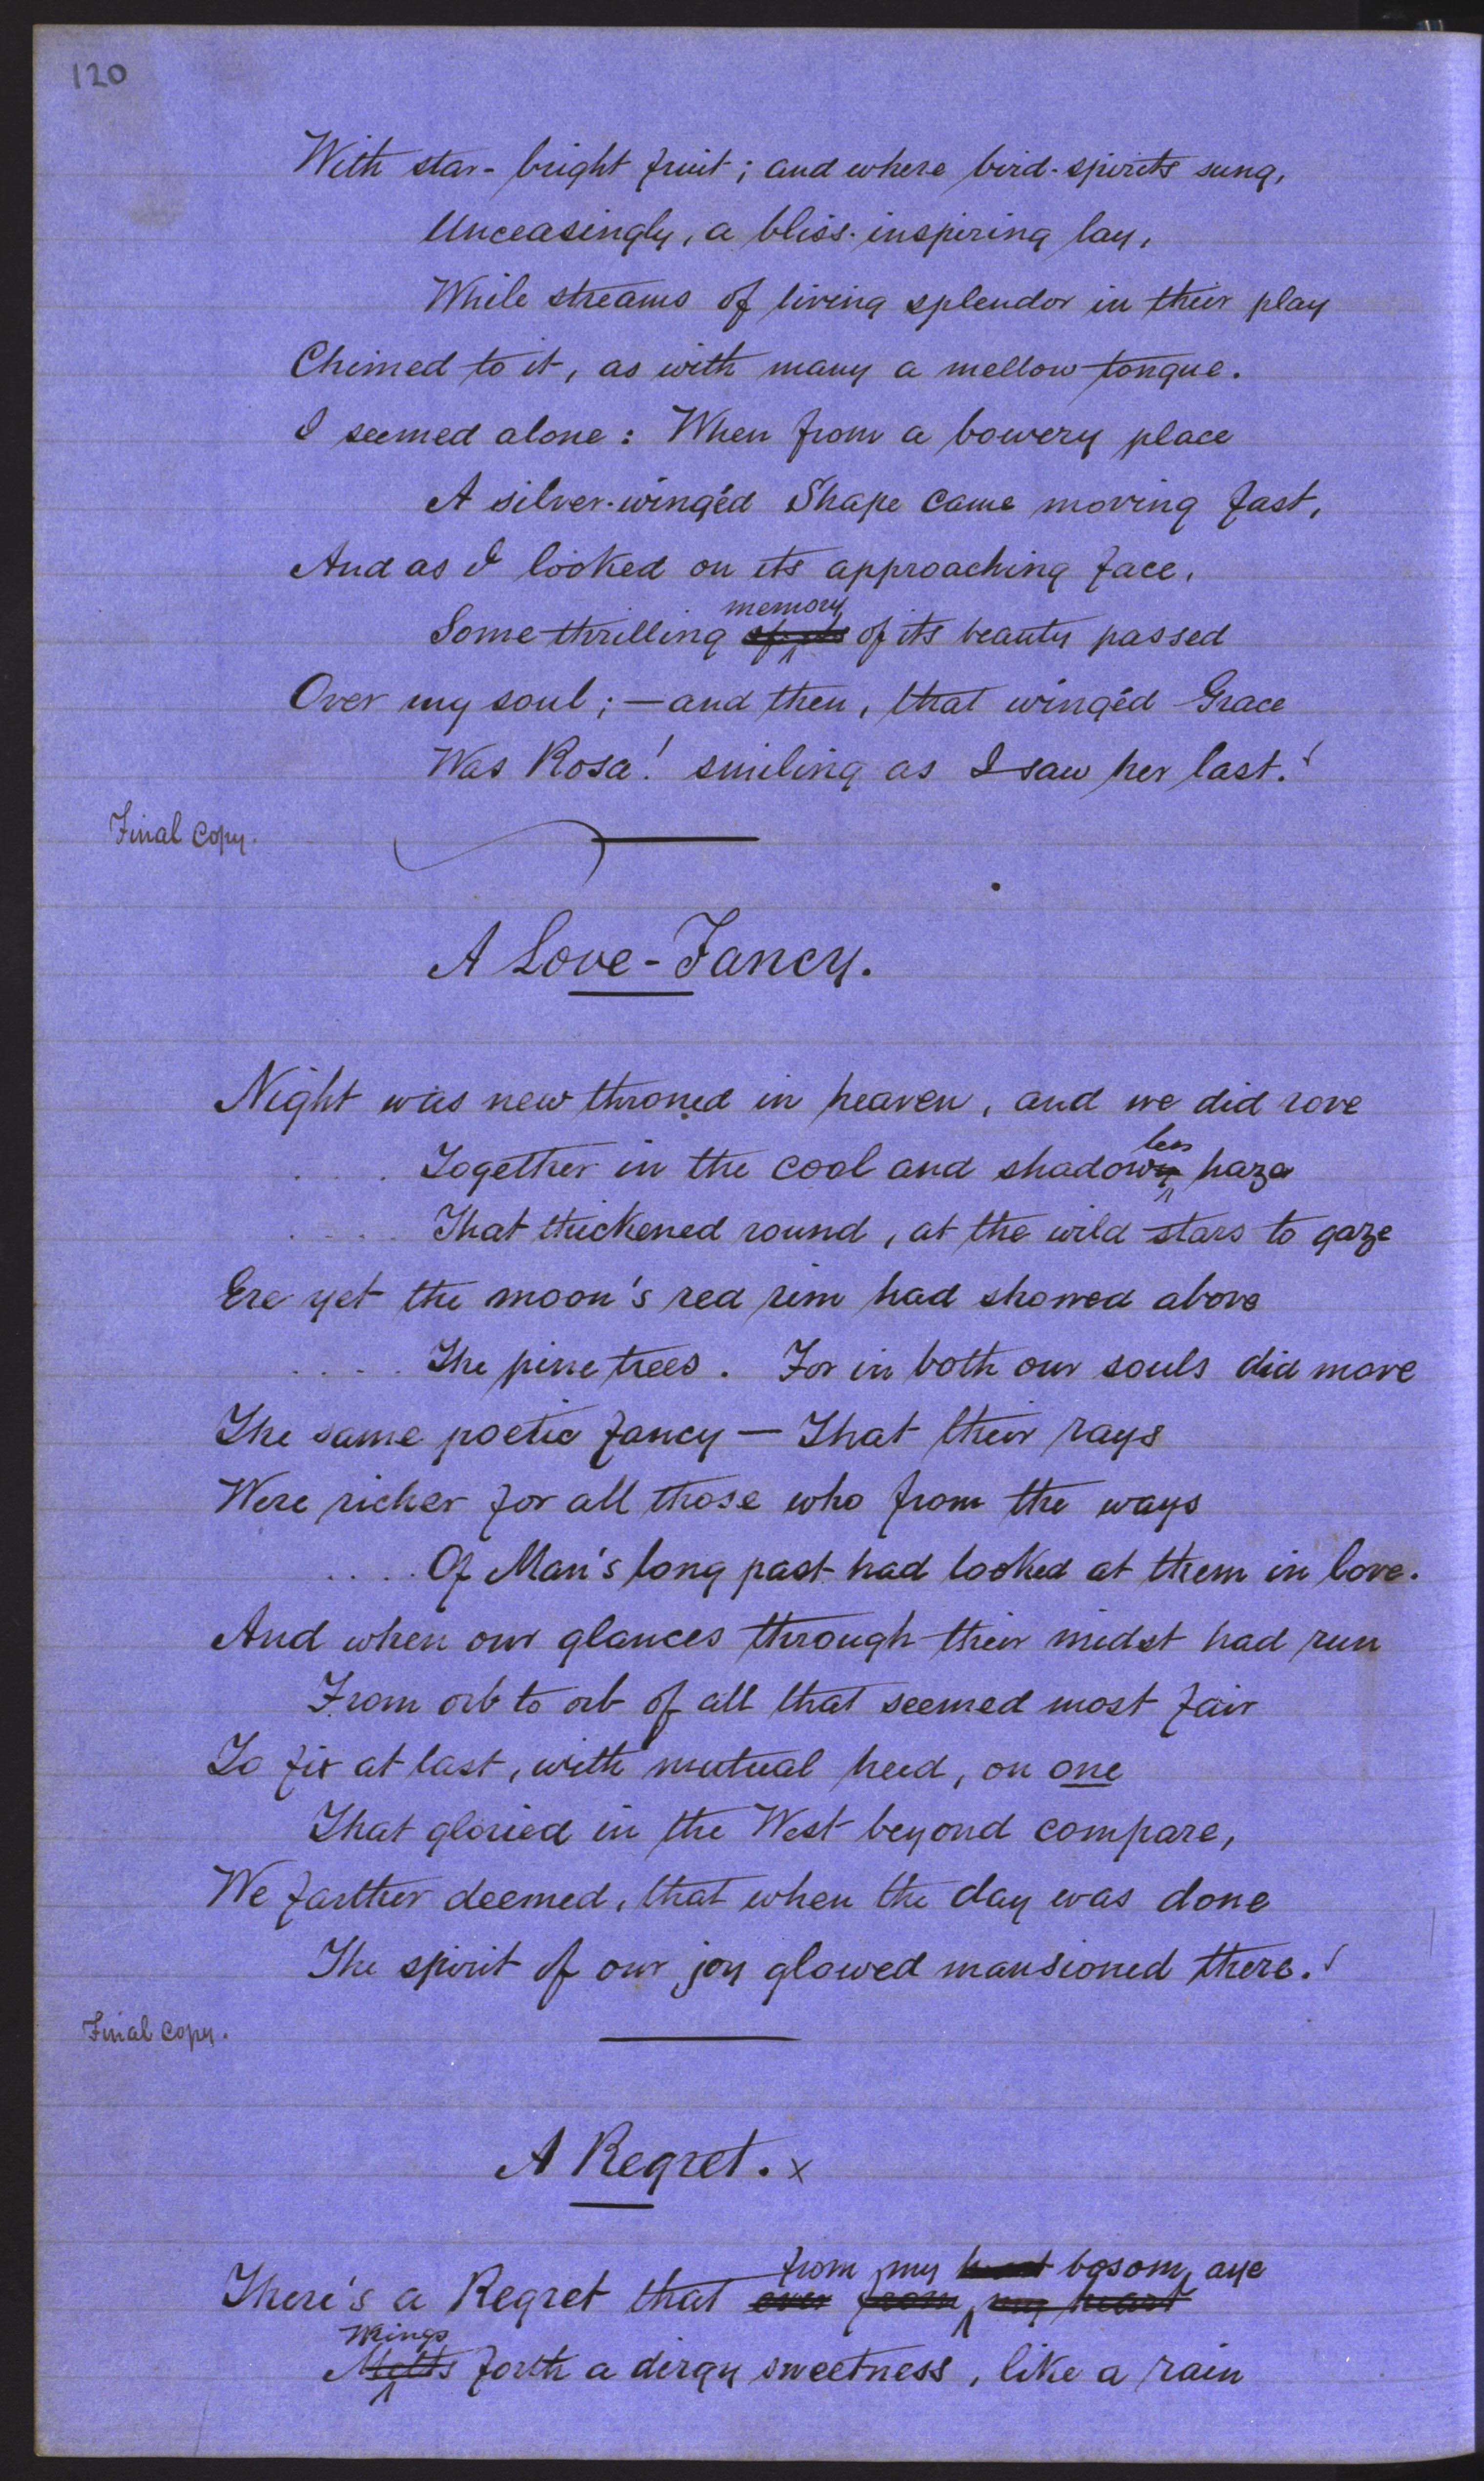 120
With star-bright fruit; and where bird-spirits sung,
Unceasingly, a bliss-inspiring lay,
While streams of living splendor in their play
Chimed to it, as with many a mellow tongue.
I seemed alone: When from a bowery place
A silver-wingéd Shape came moving fast,
And as I looked on its approaching face,
memory
Some thrilling of its of its beauty passed
Over my soul; — and then, that wingéd Grace
Was Rosa! smiling as I saw her last.!
Final copy.
A Love-Fancy.
Night was new throned in heaven, and we did rove
less
Together in the cool and shadowy haze
That thickened round, at the wild stars to gaze
Ere yet the moon's red rim had showed above
The pine trees. For in both our souls did move
The same poetic fancy — That their rays
Were richer for all those who from the ways
Of Man's long past had looked at them in love.
And when our glances through their midst had run
From orb to orb of all that seemed most fair
To fix at last, with mutual heed, on one
That gloried in the West beyond compare,
We farther deemed, that when the day was done
The spirit of our joy glowed mansioned there.!
Final copy.
A Regret. x
from my heart bosom, aye
There's a Regret that ever from my heart
Wrings
Melts forth a dirgy sweetness, like a rain